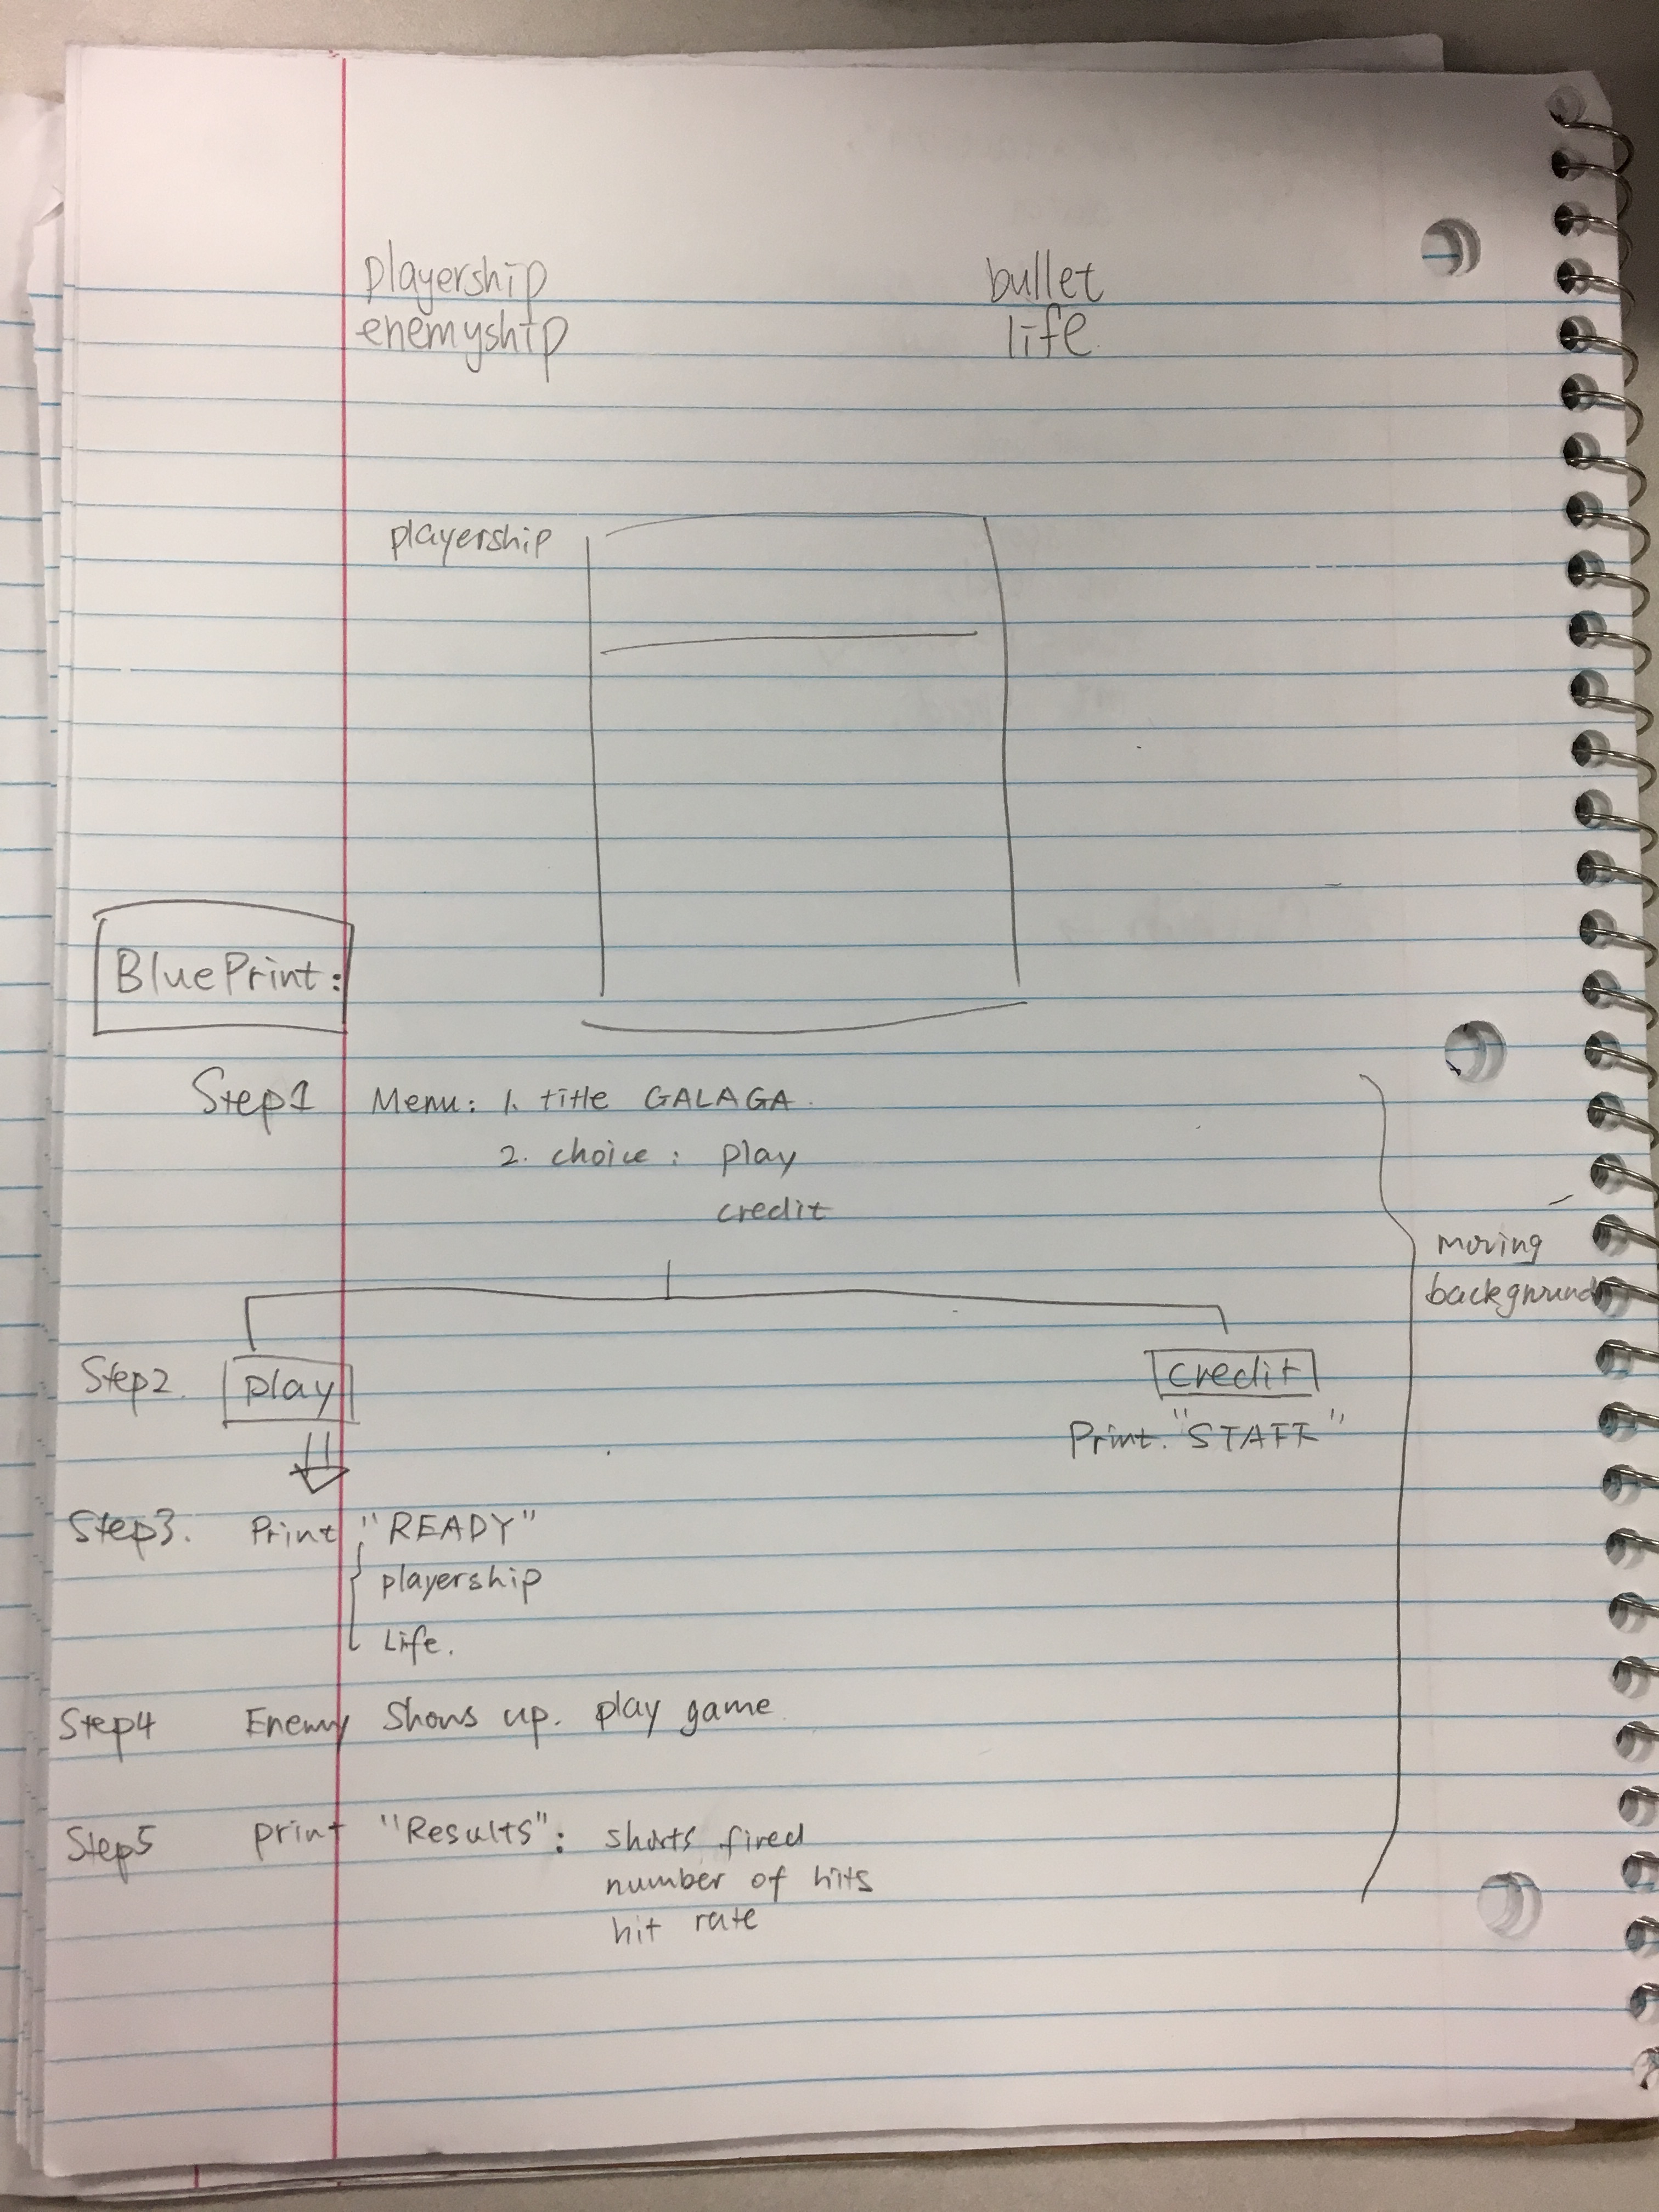 playership bullet
enemyship life
playership
BluePrint:
Step1 Menu: 1. title GALAGA.
2. choice: play
credit
moving
background
Step2. play credit
Print. "STAFF"
Step3. Print "READY"
playership
Life.
Step4 Enemy Shows up. play game.
Step5 print "Results": shorts fired
number of hits
hit rate